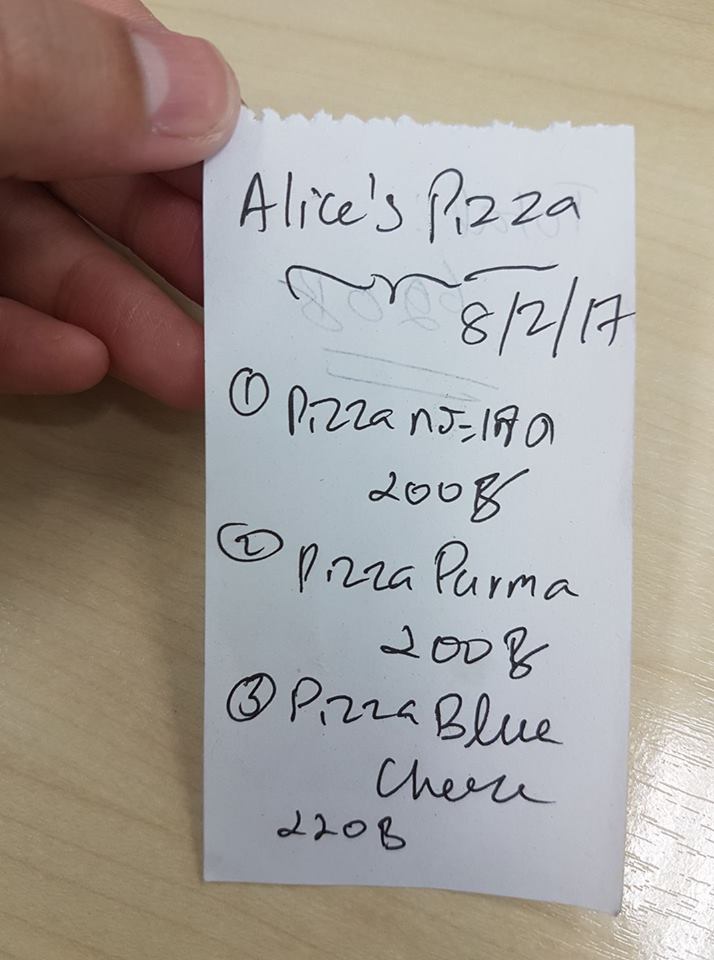 Alice's Pizza
8/2/17
① Pizza
200฿
② Pizza Parma
200฿
③ Pizza Blue
Cheese
220B